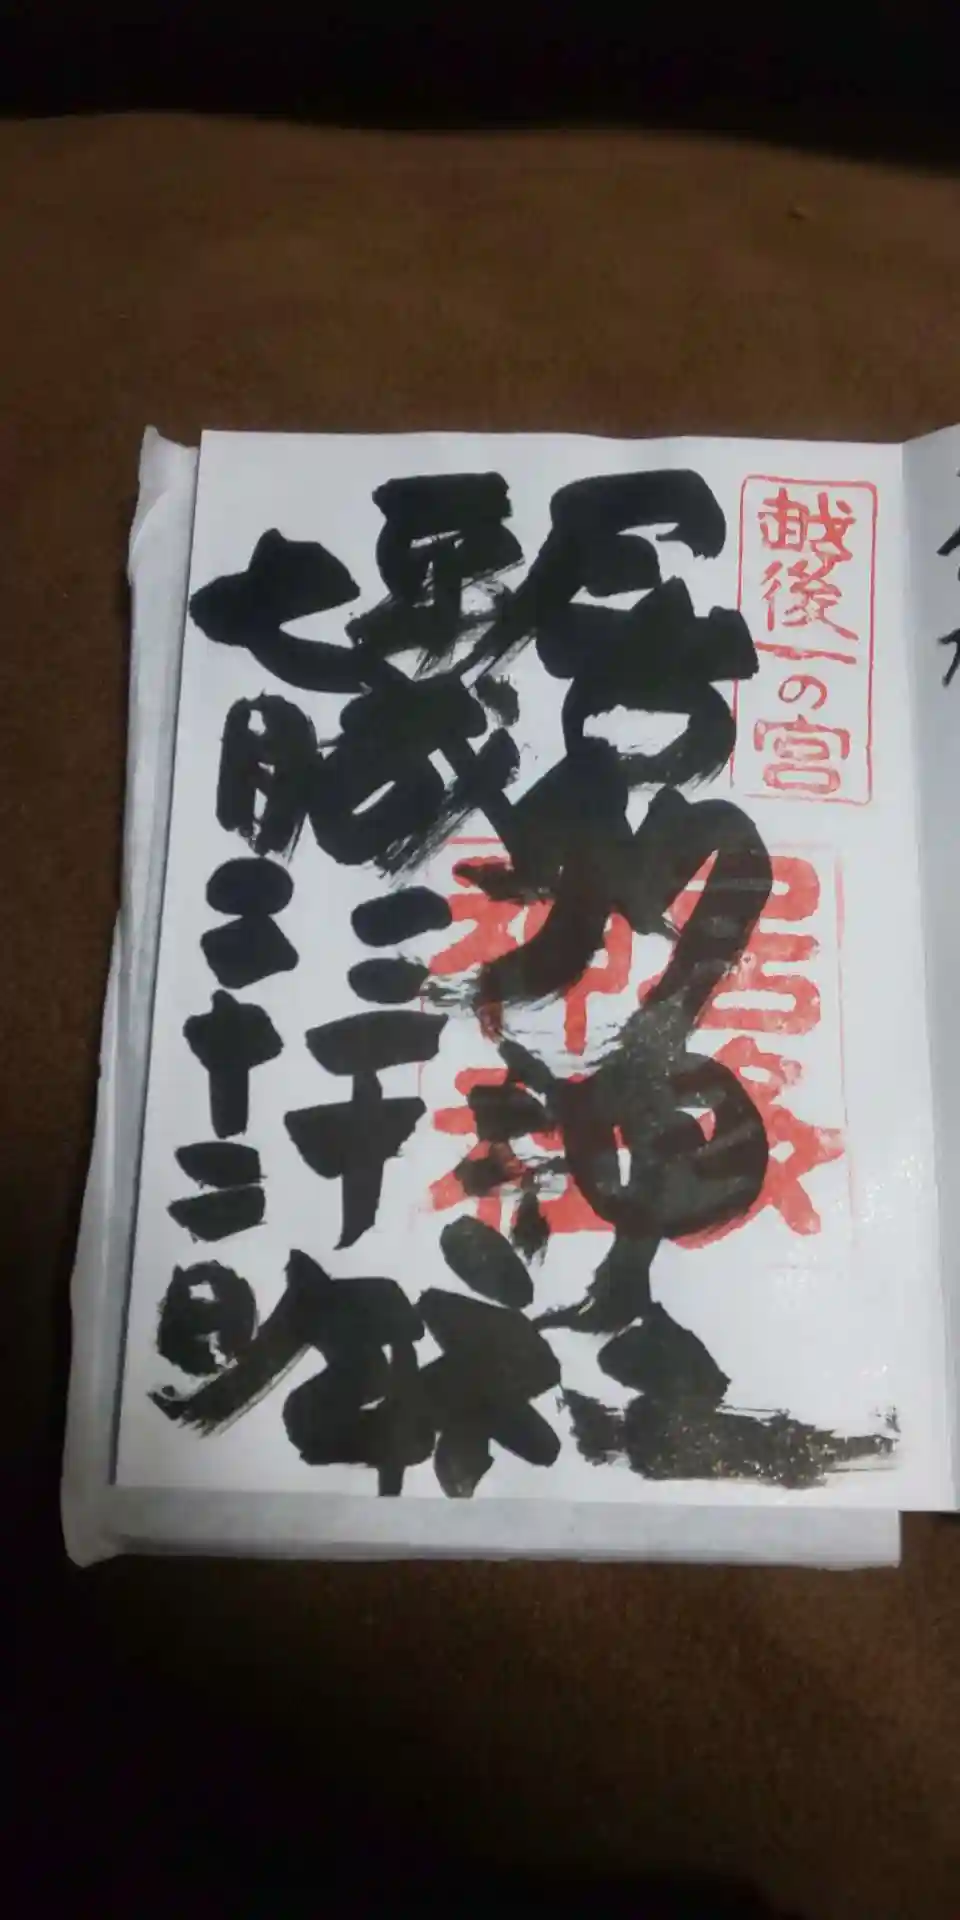 越後一の宮
居多神社
居多神社
平成三十年
七月二十二日